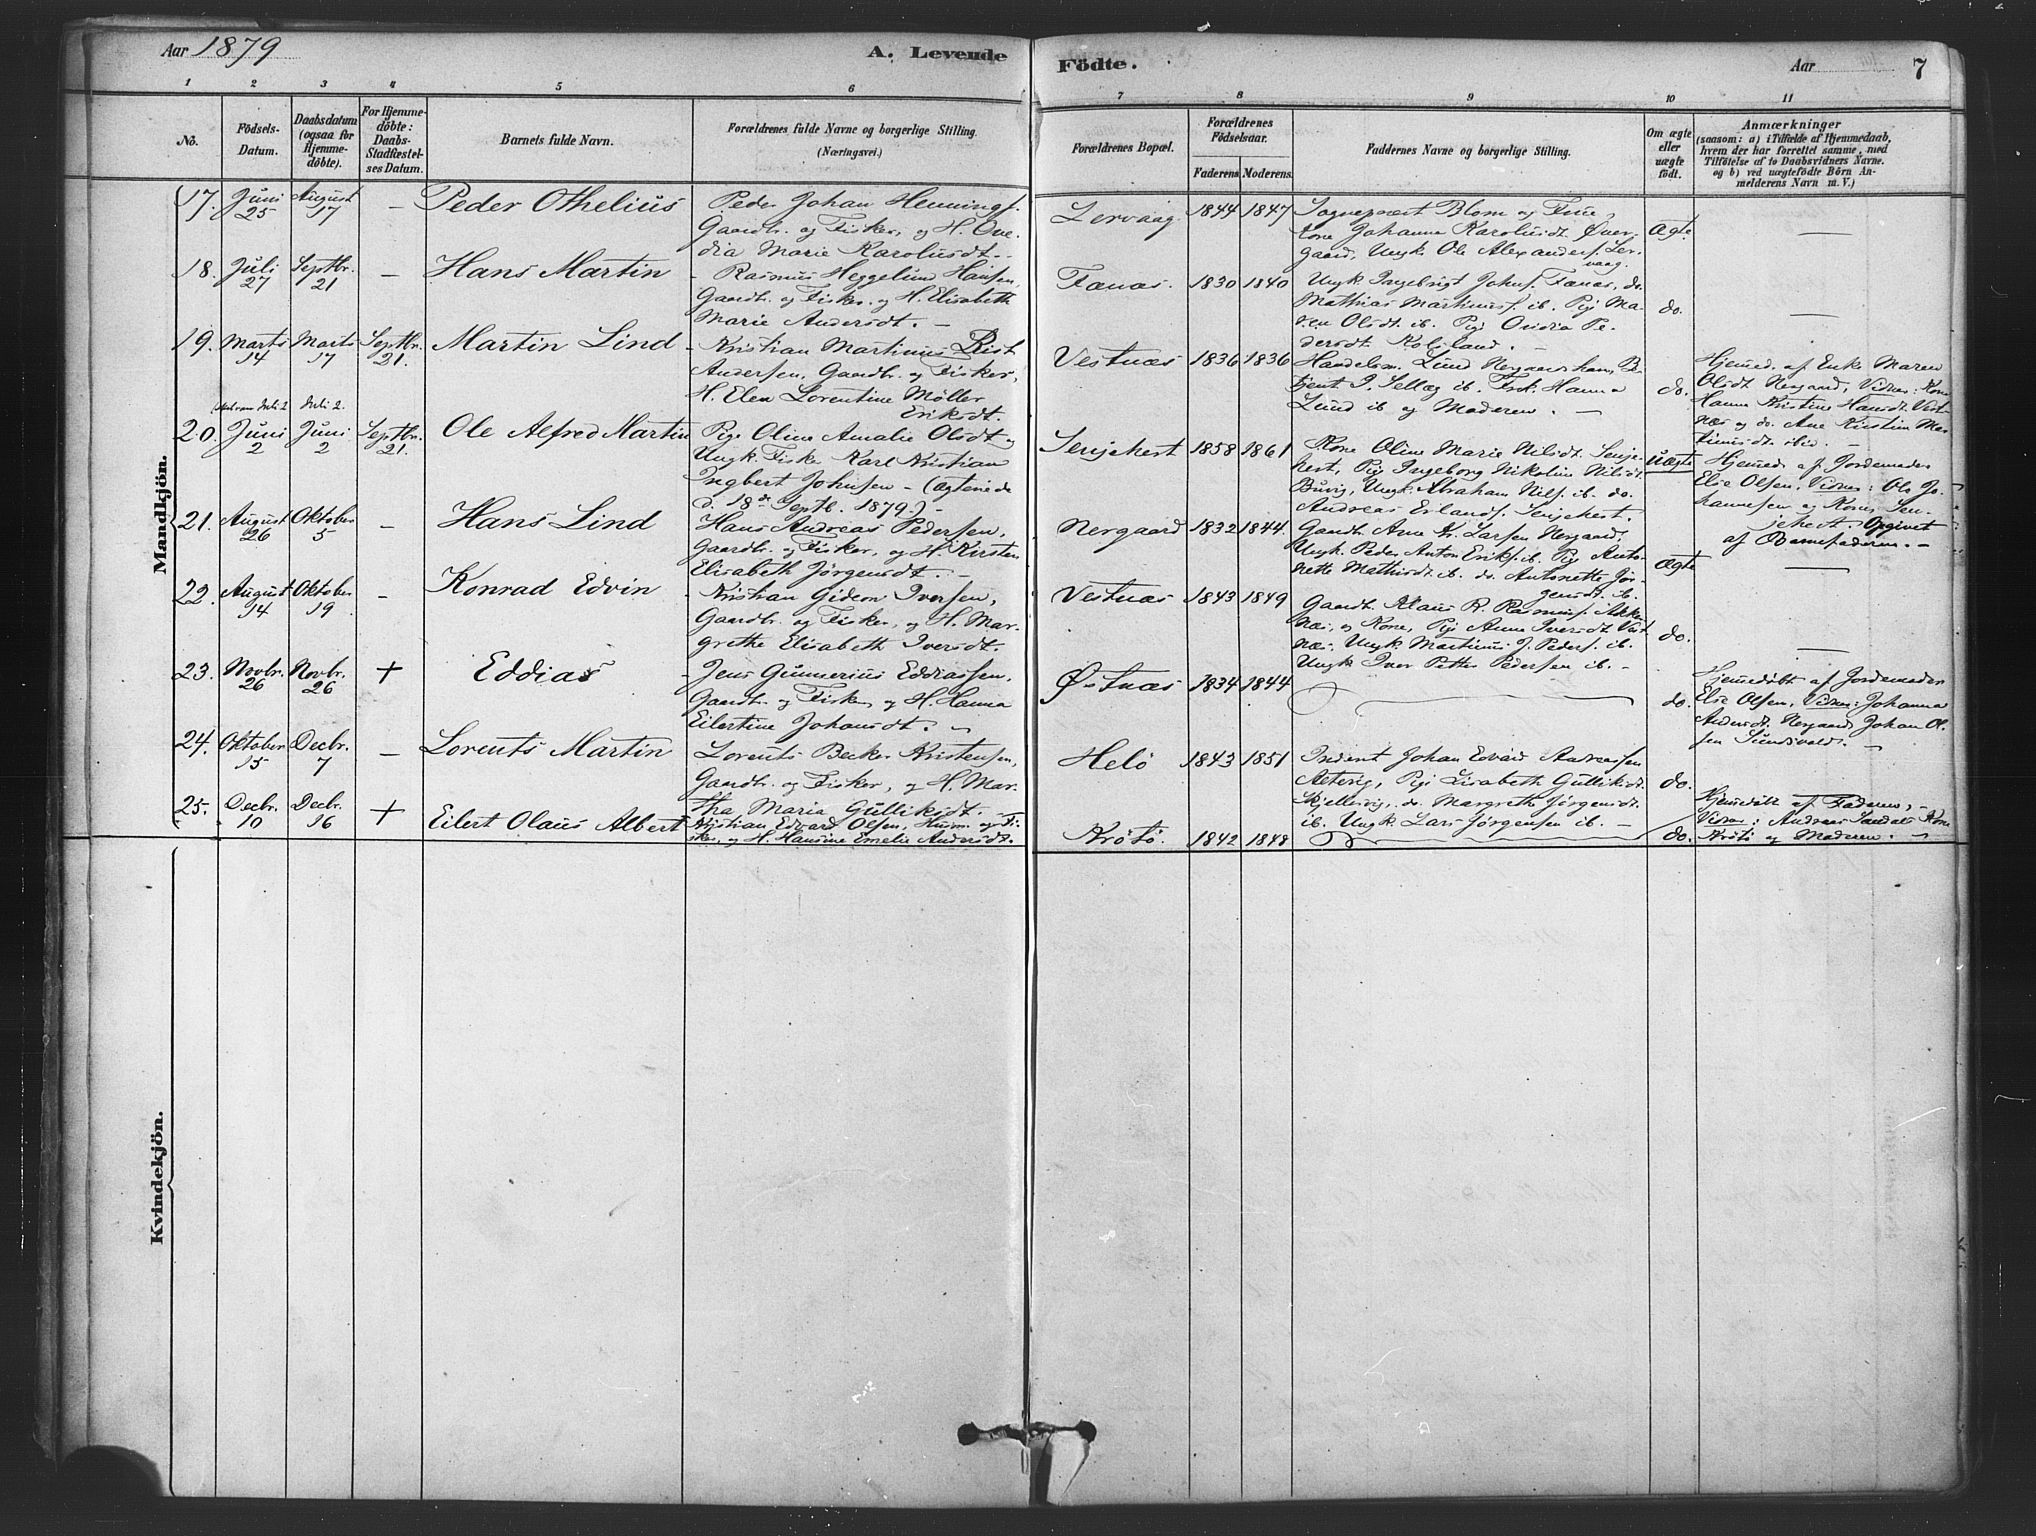 Aar 1879
A. Levende Födte.
Aar
7
1 2 3 4 5 6 7 8 9 10 11
No.
Födsels-Datum.
Daabsdatum (ogsaa for Hjemme-döbte).
For Hjemme-döbte: Daabs-Stadfæstel-ses Datum.
Barnets fulde Navn.
Forældrenes fulde Navne og borgerlige Stilling.
(Næringsvei.)
Forældrenes Bopæl.
Forældrenes Födselsaar.
Faderens. Moderens.
Faddernes Navne og borgerlige Stilling.
Om ægte eller uægte födt.
Anmærkninger
(saasom: a) i Tilfælde af Hjemmedaab,
hvem der har forrettet samme, med
Tilföielse af to Daabsvidners Navne.
og b) ved uægtefödte Börn An-
melderens Navn m. V.)
Mandkjön.
17. Juni 25 August 17 – Peder Othelius
Peder Johan Hennings.
Gaardbr. og Fisker, og H. Ove-
dia Marie Karolusdt. -
Lervaag 1844 1847
Sogneprest Blom og Frue,
Kone Johanna Karolusdt. Øver-
gaard, Ungk. Ole Alexanders. Ler-
vaag.
Ægte –
18. Juli 27 Septbr. 21 – Hans Martin
- Rasmus Heggelund Hansen,
Gaardb. og Fisker, og H. Elisabeth
Marie Andersdt. -
Fænæs. 1830 1840
Ungk. Ingebrigt Johns. Fænæs, do.
Mathias Martinus. ib. Pige Ma-
ren Olsdt. ib. Pige Ovidia Pe-
dersdt. -
do. –
19. Marts 14 Marts 17 Septbr. 21. Martin Lind
- Kristian Martinus Rist
Andersen, Gaardb. og Fisker,
H. Elen Lorentine Møller
Eriksdt.
Vestnæs 1836 1836
Handelsm. Lund
tjent. ib. Frk. Hanna
Lund ib og Moderen. -
do.
Hjemmed. af Enke Maren
Olsdt. Nergaard, Vidner: Kone
Hanna Kristine Hansdt. Vest-
næs og do. Ane Kirstine Mar-
tinusdt. ibid. -
20. Juli 2 Juli 2.
Juni 2 Juni 2 Septbr. 21. Ole Alfred Martin
Pige Oline Amalie Olsdt. og
Ungk. Fisker Karl Kristian
Ingbert Johnsen - (Ægteviede
d. 18de Septb. 1879.) -
Senjehest 1858 1861
Kone Oline Marie Nilsdt. Senje-
hest, Pige Ingeborg Nikoline Nilsdt.
Buvig, Ungk. Abraham Nils. ib. do.
Andreas Erlands. Senjehest.
Uægte
Hjemmed. af Jordemoder
Else Olsen, Vidner: Ole Jo-
hannesen og Kone, Sen-
jehest. Opgivet
af Barnefaderen. -
21. August 26 Oktober 5 – Hans Lind
Hans Andreas Pedersen,
Gaardbr. og Fisker, og H. Kirsten
Elisabeth Jørgensdt. -
Nergaard 1832 1844.
Gaardb. Arne Kr. Larsen Nergaard,
Ungk. Peder Anton Eriks. ib. Pige Anto-
nette Mathisdt. ib. do. Antonette Jør-
gensdt. ib.
Ægte –
22. August 14 Oktober 19. – Konrad Edvin
- Kristian Gideon Iversen,
Gaardbr. og Fisker, og H. Mar-
grethe Elisabeth Iversdt.
Vestnæs 1843 1849
Gaardb. Klaus R. Rasmus.
næs, og Kone, Pige Anna Iversdt. Vest-
næs, Ungk. Martinus J. Peders. ib.
Ungk. Iver Petter Pedersen ib. -
do. –
23. Novbr. 26 Novbr. 26 + Eddias
- Jens Gunnerius Eddiassen,
Gaardb. og Fisker og H. Hanna
Eilertine Johansdt. -
Østnæs 1834 1844
do.
Hjemmedøbt af Jordemoder
Else Olsen, Vidner: Johanna
Andersdt. Nergaard, Johan Ol-
sen Sundsvold. -
24. Oktober 15 Decbr. 7 – Lorents Martin
- Lorents Becker Kristensen,
Gaardb. og Fisker, og H. Mar-
tha Maria Gulliksdt. -
Helø 1843 1851
Inderst Johan Edvard Andreassen
Pige Lisabeth Gulliksdt.
Skjellevig, do. Margrethe Jørgensdt.
ib. Ungk. Lars Jørgensen ib. -
do.
25. Decbr. 10 Decbr. 16 + Eilert Olaus Albert
Kristian Edvard Olsen, Husm. og Fi-
sker, og H. Hansine Emelie Andersdt.
Krøtø. 1842 1848
do.
Hjemmedøbt af Faderen, -
Vidner: Andreas Kone
Krøtø og Moderen. -
Kvindekjön.